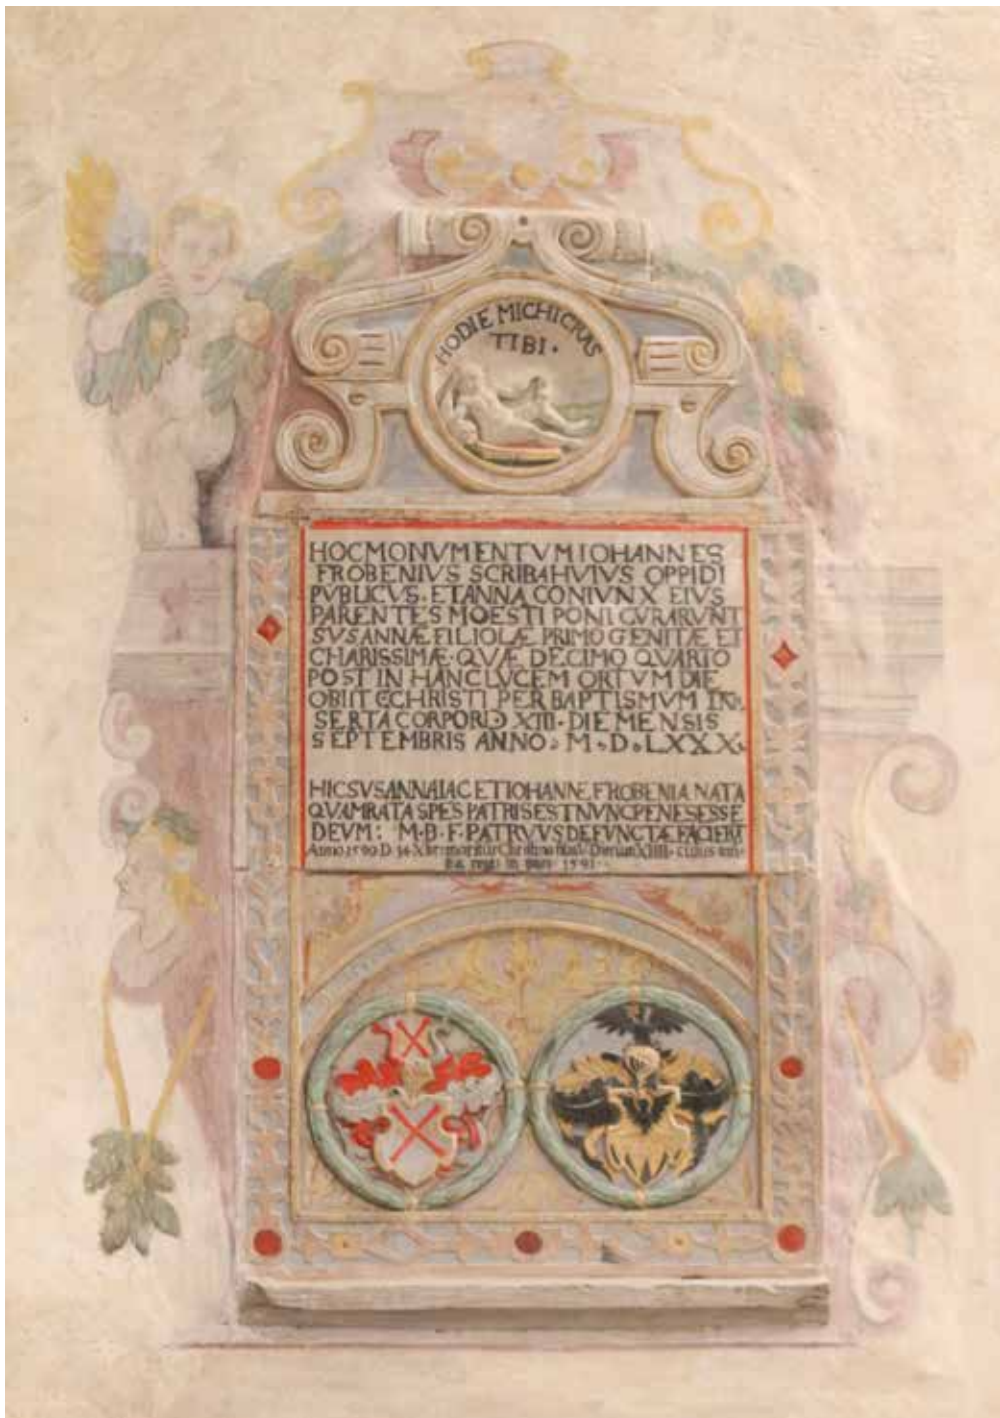 HODIE MICHI CRAS
TIBI ·
HOC MONVMENTVM IOHANNES
FROBENIVS SCRIBA HVIVS OPPIDI
PVBLICVS · ET ANNA CONIVNX EIVS
PARENTES MOESTI PONI CVRARVNT
SVSANNÆ FILIOLÆ PRIMOGENITÆ ET
CHARISSIMÆ · QVÆ DECIMO QVARTO
POST IN HANC LVCEM ORTVM DIE
OBIIT (CHRISTI PER BAPTISMVM IN
SERTA CORPORI) XIII · DIE MENSIS
SEPTEMBRIS ANNO · M · D · LXXX ·
HIC SVSANNA IACET IOHANNE FROBENIA NATA
QVAM RATA SPES PATRIS EST NVNC PENES ESSE
DEVM : M · B · F · PATRVVS DEFVNCTÆ FACIEBAT
Anno 1590 D 14 Xbr moritur Christina
1591